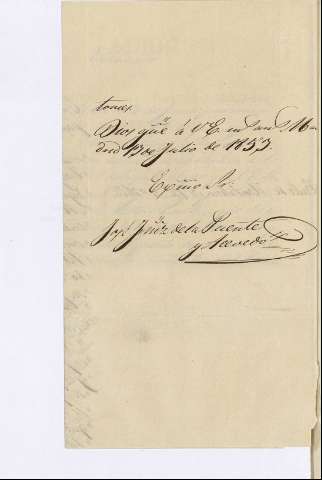 tomar.
Dios gũe á V.E. m. an.s Ma-
drid 13 de Julio de 1853.
Exm̃o Sr.
José de la Puente
y Acevedo